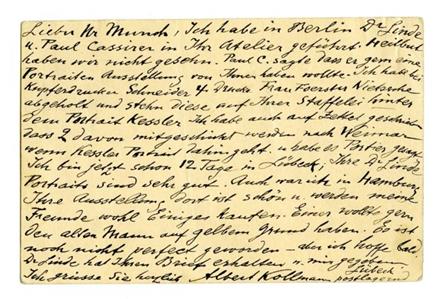 Lieber Hr Munch, Ich habe in Berlin Dr Linde
u. Paul Cassirer in Ihr Atelier geführt. Heilbut
haben wir nicht gesehn. Paul C. sagte dass er gern eine
Portraiten Ausstellung von Ihnen haben wollte. Ich habe bei
Kupferdrucker Schneider 4 Drucke Frau Foerster Nietzsche
abgeholt und stehn diese auf Ihrer Staffelei hinter
dem Portrait Kessler. Ich habe auch auf Zettel geschrieben
dass 2 davon mitgeschickt werden nach Weimar
wenn Kessler Portrait dahin geht. u. habe es Portier gesagt
Ich bin jetzt schon 12 Tage in Lübeck, Ihre Dr Linde
Portraits sind sehr gut. Auch war ich in Hamburg
Ihre Ausstellung dort ist schön u. werden meine
Freunde wohl Einiges kaufen. Einer wollte gern
den alten Mann auf gelbem Grund haben. Es ist
noch nicht perfect geworden - aber ich hoffe bald
Dr Linde hat Ihren Brief erhalten u. mir gegeben
Ich grüsse Sie herzlich Albert Kollmann Lübeck
postlagernd